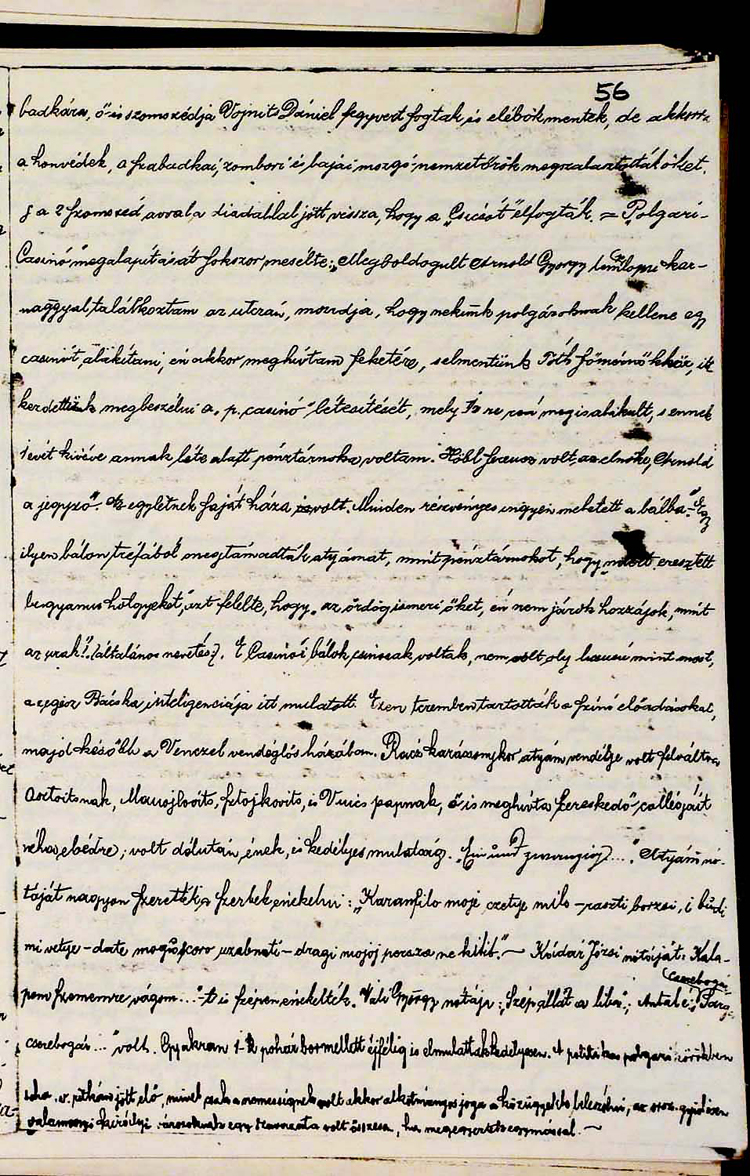 56
badkára, ő is szomszédja Vojnits Dániel fegyvert fogtak és elébök mentek, de akkorra
a honvédek, a szabadkai, zombori és bajai mozgó nemzetőrök megszalasztották őket.
s a 2 szomszéd avval a diadallal jött vissza, hogy a „Csicsót" elfogták. = „Polgári-
Casinó" megalapítását sokszor mesélte: „Megboldogult Arnold György templomi kar-
naggyal találkoztam az utcán, mondja, hogy nekünk polgároknak kellene egy
casinót alakítani, én akkor meghívtam feketére, s elmentünk Tóth főmérnökhöz, itt
kezdettünk megbeszélni a „p. casinó" létesítését, mely re meg is alakult, s ennek
1 évét kivéve annak léte alatt pénztárnoka voltam. volt az elnöke, Arnold
a jegyző". Az egyletnek saját háza is volt. Minden részvényes ingyen mehetett a bálba. Egy
ilyen bálon tréfából megtámadták atyámat, mint pénztárnokot, hogy miért eresztett
be gyanus hölgyeket, azt felelte, hogy „az ördög ismeri őket, én nem járok hozzájok, mint
az urak! (általános nevetés). E Casinói bálok csinosak voltak, nem volt oly luxus mint most,
az egész Bácska inteligenciája itt mulatott. Ezen teremben tartották a színi előadásokat,
majd később a Venczel vendéglős házában. Rácz karácsonykor atyám vendége volt felváltva
Manojlovits, Stojkovits, és Vuics papnak, ő is meghívta kereskedő collégáit
néha ebédre; volt délután, ének, és kedélyes mulatság. Atyám nó-
táját nagyon szerették a szerbek énekelni: „Karanfilo moje cvetye milo - raszti borzsi, i budi
mi vetye - date mogu szkoro uzabrati - dragi mojoj persza ne kitit." ~ Kudár Józsi nótáját: Kala-
pom szememre vágom..."-t is szépen énekelték. Váli György nótája: „Szép állat a liba"; Antalé: Sárga
cserebogár
cserebogár..." volt. Gyakran 1-2 pohár bor mellett éjfélig is elmulattak kedélyesen. A politika a polgári körökben
soha sem jött elő, mivel csak a nemességnek volt akkor alkotmányos joga a közügyekbe beleszólni, az orsz. gyűlésen
valamennyi királyi városoknak egy szavazata volt összesen, ha megegyeztek egymással. ~